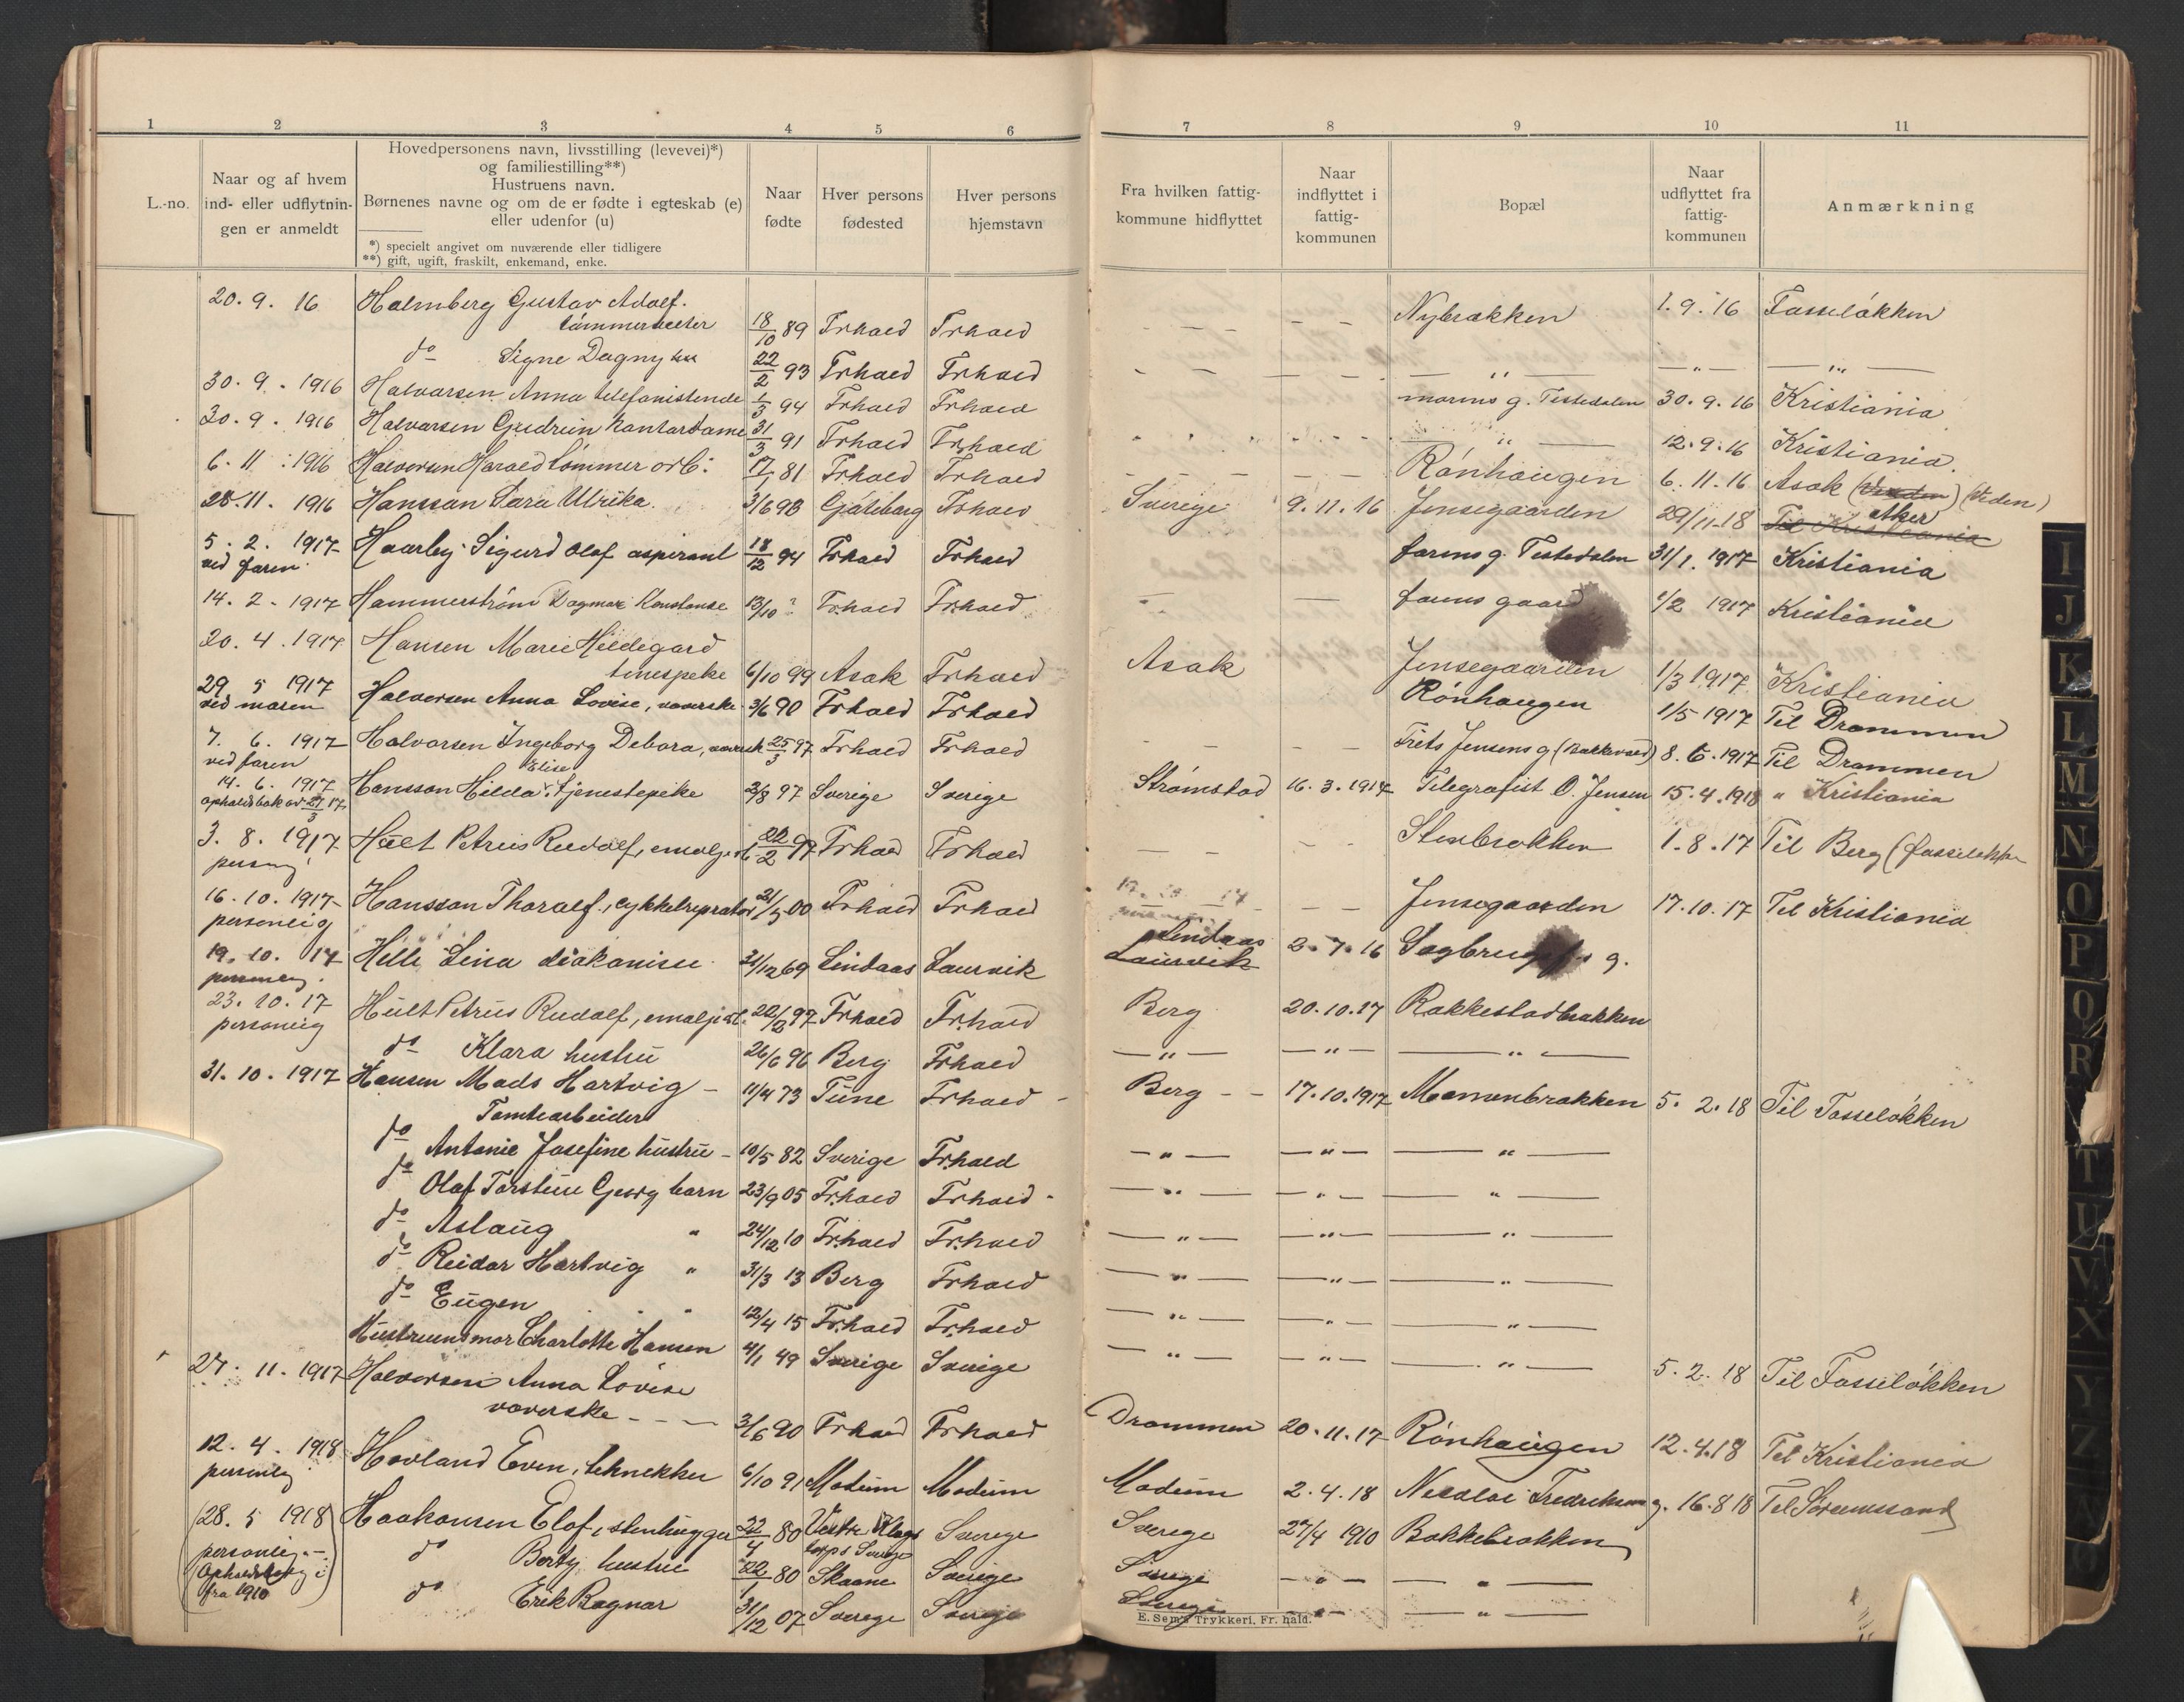 1 2 3 4 5 6 7 8 9 10 11
L.-no.
Naar og af hvem
ind- eller udflytnin-
gen er anmeldt
Hovedpersonens navn, livsstilling (levevei)*)
og familiestilling**)
Hustruens navn.
Børnenes navne og om de er fødte i egteskab (e)
eller udenfor (u)
*) specielt angivet om nuværende eller tidligere
**) gift, ugift, fraskilt, enkemand, enke.
Naar
fødte
Hver persons
fødested
Hver persons
hjemstavn
Fra hvilken fattig-
kommune hidflyttet
Naar
indflyttet i
fattig-
kommunen
Bopæl
Naar
udflyttet fra
fattig-
kommunen
Anmærkning
20. 9. 16 Holmberg Gustav Adolf.
tømmerhester 18/10 89 Frhald Frhald Nybrækken 1.9.16 Fasseløkken
do Signe Dagny 22/2 93 Frhald Frhald — " — — " — — " —
30. 9. 1916 Halvorsen Anna telefonistinde 1/3 94 Frhald Frhald morens g. Tistedalen 30.9.16 Kristiania
30. 9. 1916 Halvorsen Gudrun Kontordame 31/3 91 Frhald Frhald — " — 12.9.16 Kristiania.
6. 11. 1916 Halvorsen Harald tømmer arb: 17/1 81 Frhald Frhald Rønhaugen 6.11.16 Asak (Veden) (Veden)
28. 11. 1916 Hansson Sara Ulrika. 3/6 98 Gøteborg Frhald Sverige 9.11.16 Jensegaarden 29/11-18 Til Kristiania Aker
5. 2. 1917 Haarby Sigurd Olaf aspirant 18/12 94 Frhald Frhald farens g. Tistedalen 31/1. 1917 Kristiania
ved faren
14. 2. 1917 Hammerstrøm Dagmar Konstanse 13/10 ? Frhald Frhald farens gaard 1/2 1917 Kristiania
20. 4. 1917 Hansen Marie Hildegard
tenespeke 6/10 99 Asak Frhald Asak Jensegaarden 1/3 1917 " Kristiania
29 5 1917 Halvorsen Anna Lovise, væverske 3/6 90 Frhald Frhald Rønhaugen 1/5 1917 Til Drammen
ved moren
7. 6. 1917 Halvorsen Ingeborg Debora, 25/3 97 Frhald Frhald Frits Jensens g 8.6.1917 Til Drammen
ved faren
14. 6. 1917 Hansson Hilda Elise tjenestepike 2/8 97 Sverige Sverige Strømstad 16.3.1917 Telegrafist O. Jensen 15.4.1918 " Kristiania
opholdsbok av 27/3 17
3. 8. 1917 Hult Petrus Rudolf, 22/2 97 Frhald Frhald Stenbrækken 1.8.17 Til Berg (Fasseløkken
16. 10. 1917 Hansson Thoralf, cykkelreparatør 21/5 00 Frhald Frhald Jensegaarden 17.10.17 Til Kristiania
personlig
19. 10. 17 Helle Lina diakonisse 31/12 69 Lindaas Laurvik Lindaas Laurvik 2.7.16 Sagbrugets g.
personlig.
23. 10. 17 Hult Petrus Rudolf, 22/2 97 Frhald Frhald Berg 20.10.17 Rakkestadbrækken
personlig
do Klara hustru 26/6 96 Berg Frhald — " — — " — — " —
31. 10. 1917 Hansen Mads Hartvig 11/4 73 Tune Frhald Berg 17.10.1917 Momenbrækken 5. 2. 18 Til Fasseløkken
Tomtearbeider
do Antonie Josefine hustru 10/5 82 Sverige Frhald — " — — " — — " —
do Olaf Torstein Georg barn 23/9 05 Frhald Frhald — " — — " — — " —
do Aslaug " 24/12 10 Frhald Frhald — " — — " — — " —
do Reidar Hartvig " 31/3 13 Berg Frhald — " — — " — — " —
do Eugen " 12/4 15 Frhald Frhald — " — — " — — " —
Hustruens mor Charlotte Hansen 4/1 49 Sverige Sverige — " — — " — — " — 5. 2. 18 Til Fasseløkken
27. 11. 1917 Halvorsen Anna Lovise
væverske 3/6 90 Frhald Frhald Drammen 20.11.17 Rønhaugen 12.4.18 Til Kristiania
12. 4. 1918 Hovland Even, tekniker 6/10 91 Modum Modum Modum 2.4.18 Nicolai Fredriksens g. 16.8 18 Til Sørumsand
personlig
(28. 5 1918) Haakonsen Elof, stenhugger 22/4 80 Vestre Klagstorps Sverige Sverige Sverige 27/4 1910 Bakkebrækken
personlig.
do Berty, hustru 22/1 80 Skaane Sverige Sverige — " — — " —
fra 1910
do Erik Ragnar 31/12 07 Sverige Sverige Sverige — " — — " —
E. Sem's Trykkeri, Fr.hald.
I
J
K
L
M
N
O
P
Q
R
T
U
V
X
Y
Z